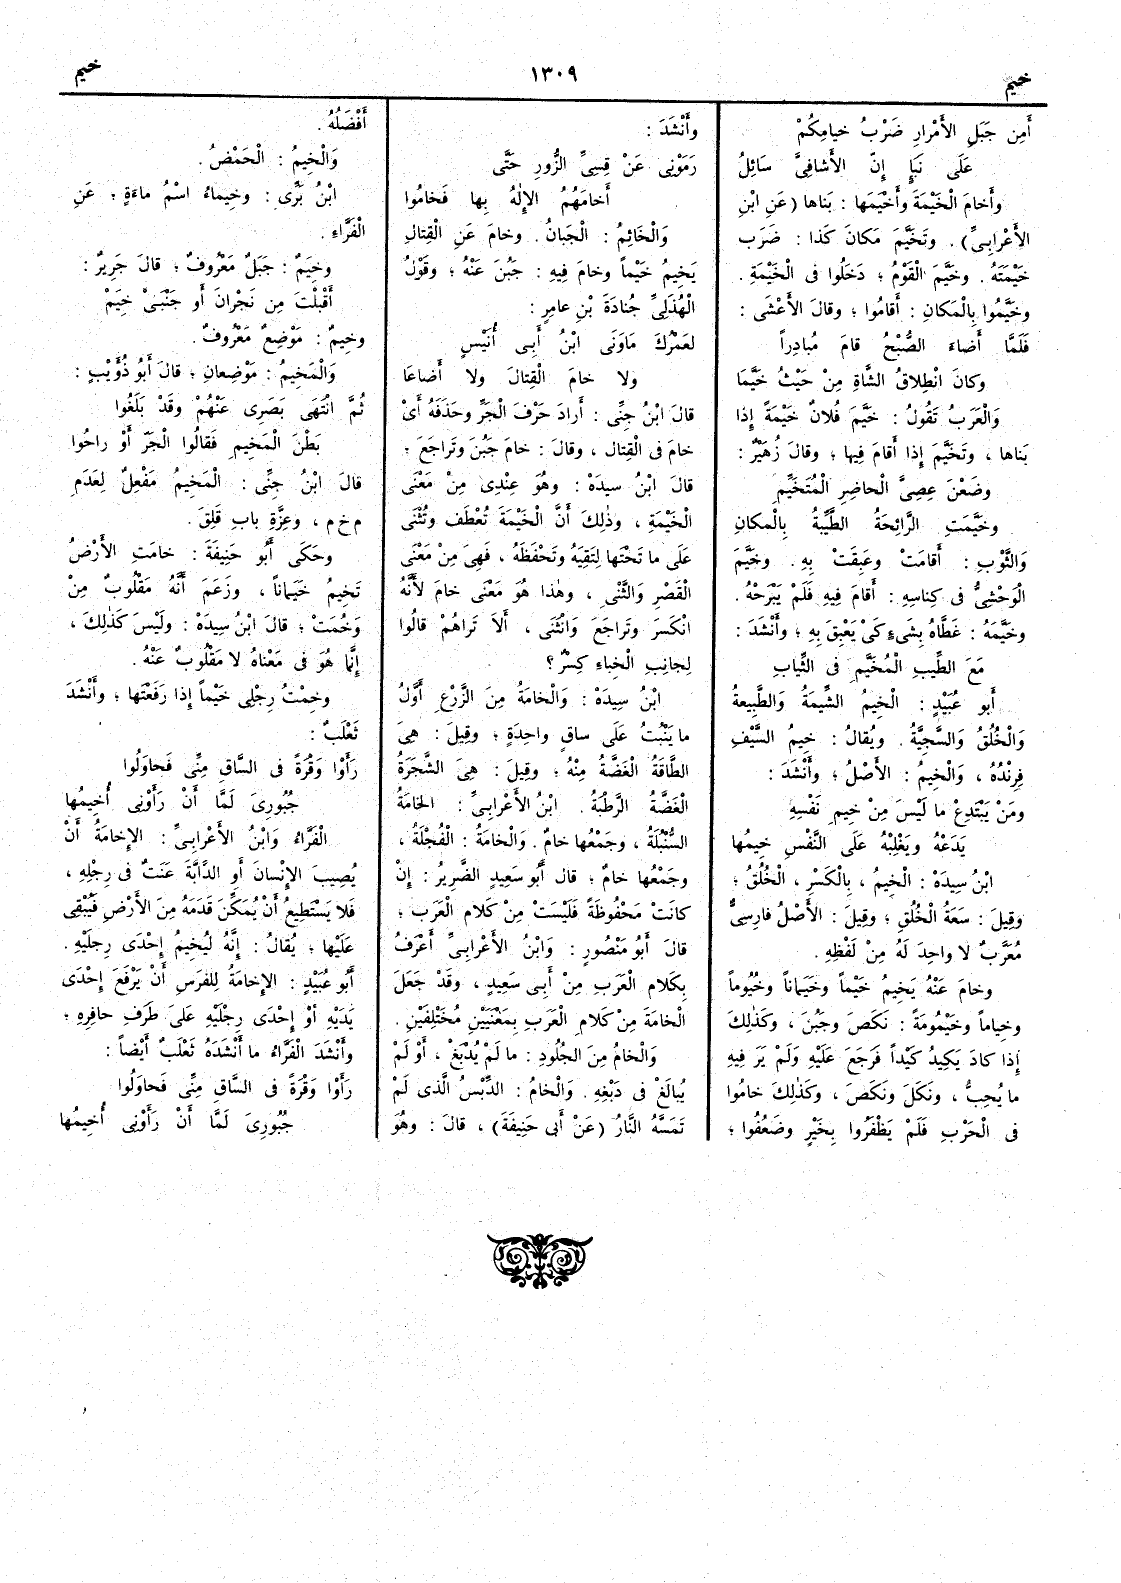 خيم
١٣٠٩
خيم
أَمِن جَبَلِ الأَمْرارِ ضَرْبُ خيامِكُمْ
عَلَى نَبَإٍ إِنّ الأَشافِىَّ سَائِلُ
وأَخامَ الْخَيْمَةَ وأَخْيَمَها : بَناها (عَنِ ابْنِ
الأَعْرابِىِّ). وتَخَيَّمَ مَكانَ كَذا : ضَرَبَ
خَيْمَتَهُ . وخَيَّمَ الْقَوْمُ : دَخَلُوا فى الْخَيْمَةِ .
وخَيَّمُوا بِالْمَكانِ : أَقامُوا ؛ وقالَ الأَعْشَى :
فَلَمَّا أَضاءَ الصُّبْحُ قامَ مُبادِراً
وكانَ انْطِلاقُ الشَّاةِ مِنْ حَيْثُ خَيَّمَا
وَالْعَرَبُ تَقُولُ : خَيَّمَ فُلانٌ خَيْمَةً إِذا
بَناها ، وتَخَيَّمَ إِذا أَقامَ فِيها ؛ وقالَ زُهَيْرٌ :
وضَعْنَ عِصِىَّ الْحاضِرِ الْمُتَخَيِّمِ
وخَيَّمَتِ الرَّائِحَةُ الطَّيِّبَةُ بِالْمكانِ
وَالثَّوْبِ : أَقامَتْ وعَبِقَتْ بِهِ . وخَيَّمَ
الْوَحْشِىُّ فى كِناسِهِ : أَقامَ فِيهِ فَلَمْ يَبْرَحْهُ .
وخَيَّمَهُ : غَطَّاهُ بِشَىءٍ كَىْ يَعْبَقَ بِهِ ؛ وأَنْشَدَ :
مَعَ الطِّيبِ الْمُخَيَّمِ فى الثِّيابِ
أَبو عُبَيْدٍ : الْخِيمُ الشِّيمَةُ وَالطَّبِيعةُ
وَالْخُلُقُ وَالسَّجِيَّةُ . ويُقالُ : خِيمُ السَّيْفِ
فِرِنْدُهُ ، وَالْخِيمُ : الأَصْلُ ؛ وأَنْشَدَ :
ومَنْ يَبْتَدِعْ ما لَيْسَ مِنْ خِيمِ نَفْسِهِ
يَدَعْهُ ويَغْلِبْهُ عَلَى النَّفْسِ خِيمُها
ابْنُ سِيدَهْ : الْخِيمُ ، بِالْكَسْرِ ، الْخُلُقُ ؛
وقِيلَ : سَعَةُ الْخُلُقِ ؛ وقِيلَ : الأَصْلُ فارِسِىٌّ
مُعَرَّبٌ لا واحِدَ لَهُ مِنْ لَفْظِهِ .
وخامَ عَنْهُ يَخِيمُ خَيْماً وخَيَماناً وخُيُوماً
وخِياماً وخَيْمُومَةً : نَكَصَ وجَبُنَ ، وكَذٰلِكَ
إِذا كادَ يَكِيدُ كَيْداً فَرَجَعَ عَلَيْهِ وَلَمْ يَرَ فِيهِ
ما يُحِبُّ ، ونَكَلَ ونَكَصَ ، وكَذٰلِكَ خامُوا
فى الْحَرْبِ فَلَمْ يَظْفَرُوا بِخَيْرٍ وضَعُفُوا ؛
وأَنْشَدَ :
رَمَوْنِى عَنْ قِسِىِّ الزُّورِ حَتَّى
أَخامَهُمُ الإِلٰهُ بِها فَخامُوا
وَالْخَائِمُ : الْجَبانُ . وخامَ عَنِ الْقِتالِ
يَخِيمُ خَيْماً وخامَ فِيهِ : جَبُنَ عَنْهُ ؛ وقَوْلُ
الْهُذَلِىِّ جُنادَةَ بْنِ عامِرٍ :
لَعَمْرُكَ مَاوَنَى ابْنُ أَبِى أُنَيْسٍ
ولا خامَ الْقِتالَ ولا أَضاعَا
قالَ ابْنُ جِنِّى : أَرادَ حَرْفَ الْجَرِّ وحَذَفَهُ أَىْ
خامَ فى الْقِتالِ ، وقالَ : خامَ جَبُنَ وتَراجَعَ ؛
قالَ ابْنُ سِيدَهْ : وهُوَ عِنْدِى مِنْ مَعْنَى
الْخَيْمَةِ ، وذٰلِكَ أَنَّ الْخَيْمَةَ تُعْطَفُ وتُثْنَى
عَلَى ما تَحْتَها لِتَقِيَهُ وتَحْفَظَهُ ، فَهِىَ مِنْ مَعْنَى
الْقَصْرِ وَالثَّنْىِ ، وهٰذا هُوَ مَعْنَى خامَ لأَنَّهُ
انْكَسَرَ وتَراجَعَ وَانْثَنَى ، أَلا تَراهُمْ قالُوا
لِجانِبِ الْخِباءِ كِسْرٌ ؟
ابْنُ سِيدَهْ : وَالْخامَةُ مِنَ الزَّرْعِ أَوَّلُ
ما يَنْبُتُ عَلَى ساقٍ واحِدَةٍ ؛ وقِيلَ : هِىَ
الطَّاقَةُ الْغَضَّةُ مِنْهُ ؛ وقِيلَ : هِىَ الشَّجَرَةُ
الْغَضَّةُ الرَّطْبَةُ . ابْنُ الأَعْرابِىِّ : الخامَةُ
السُّنْبُلَةُ ، وجَمْعُها خامٌ . وَالْخامَةُ : الْفُجْلَةُ ،
وجَمْعُها خامٌ ؛ قال أَبُو سَعِيدٍ الضَّرِيرُ : إِنْ
كانَتْ مَحْفُوظَةً فَلَيْسَتْ مِنْ كَلامِ الْعَرَبِ ؛
قالَ أَبُو مَنْصُورٍ : وَابْنُ الأَعْرابِىِّ أَعْرَفُ
بِكَلامِ الْعَرَبِ مِنْ أَبِى سَعِيدٍ ، وقَدْ جَعَلَ
الْخامَةَ مِنْ كَلامِ الْعَرَبِ بِمَعْنَيَيْنِ مُخْتَلِفَيْنِ .
وَالْخامُ مِنَ الْجُلُودِ : ما لَمْ يُدْبَغْ ، أَوْ لَمْ
يُبالَغْ فى دَبْغِهِ . وَالْخامُ : الدِّبْسُ الَّذى لَمْ
تَمَسَّهُ النَّارُ (عَنْ أَبِى حَنِيفَةَ) ، قالَ : وهُوَ
أَفْضَلُهُ .
وَالْخِيمُ : الْحَمْضُ .
ابْنُ بَرِّى : وخِيماءُ اسْمُ ماءَةٍ ؛ عَنِ
الْفَرَّاءِ .
وخِيَمٌ : جَبَلٌ مَعْرُوفٌ ؛ قالَ جَرِيرٌ :
أَقْبَلْتَ مِن نَجْرانَ أَو جَنْبَىْ خِيَمْ
وخِيمٌ : مَوْضِعٌ مَعْرُوفٌ .
وَالْمَخِيمُ : مَوْضِعانِ ؛ قالَ أَبُو ذُؤَيْبٍ :
ثُمَّ انْتَهَى بَصَرِى عَنْهُمْ وَقَدْ بَلَغُوا
بَطْنَ الْمَخِيمِ فَقالُوا الْجَرّ أَوْ راحُوا
قالَ ابْنُ جِنِّى : الْمَخِيمُ مَفْعِلٌ لِعَدَمِ
م خ م ، وعِزَّةِ بابِ قَلِقَ .
وحَكَى أَبُو حَنِيفَةَ : خامَتِ الأَرْضُ
تَخِيمُ خَيَماناً ، وزَعَمَ أَنَّهُ مَقْلُوبٌ مِنْ
وَخُمَتْ ؛ قالَ ابْنُ سِيدَهْ : ولَيْسَ كَذٰلِكَ ،
إِنَّما هُوَ فى مَعْناهُ لا مَقْلُوبٌ عَنْهُ .
وخِمْتُ رِجْلِى خَيْماً إِذا رَفَعْتَها ؛ وأَنْشَدَ
ثَعْلَبٌ :
رَأَوْا وَقْرَةً فى السَّاقِ مِنِّى فَحاوَلُوا
جُبُورِىَ لَمَّا أَنْ رَأَوْنِى أُخِيمُها
الْفَرَّاءُ وَابْنُ الأَعْرابِىِّ : الإِخامَةُ أَنْ
يُصِيبَ الإِنْسانَ أَوِ الدَّابَّةَ عَنَتٌ فى رِجْلِهِ ،
فَلا يَسْتَطِيعُ أَنْ يُمَكِّنَ قَدَمَهُ مِنَ الأَرْضِ فَيُبْقِى
عَلَيْها ؛ يُقالُ : إِنَّهُ لَيُخِيمُ إِحْدَى رِجْلَيْهِ .
أَبُو عُبَيْدٍ : الإِخامَةُ لِلْفَرَسِ أَنْ يَرْفَعَ إِحْدَى
يَدَيْهِ أَوْ إِحْدَى رِجْلَيْهِ عَلَى طَرَفِ حافِرِهِ ؛
وأَنْشَدَ الْفَرَّاءُ ما أَنْشَدَهُ ثَعْلَبٌ أَيْضاً :
رَأَوْا وَقْرَةً فى السَّاقِ مِنِّى فَحاوَلُوا
جُبُورِىَ لَمَّا أَنْ رَأَوْنِى أُخِيمُها